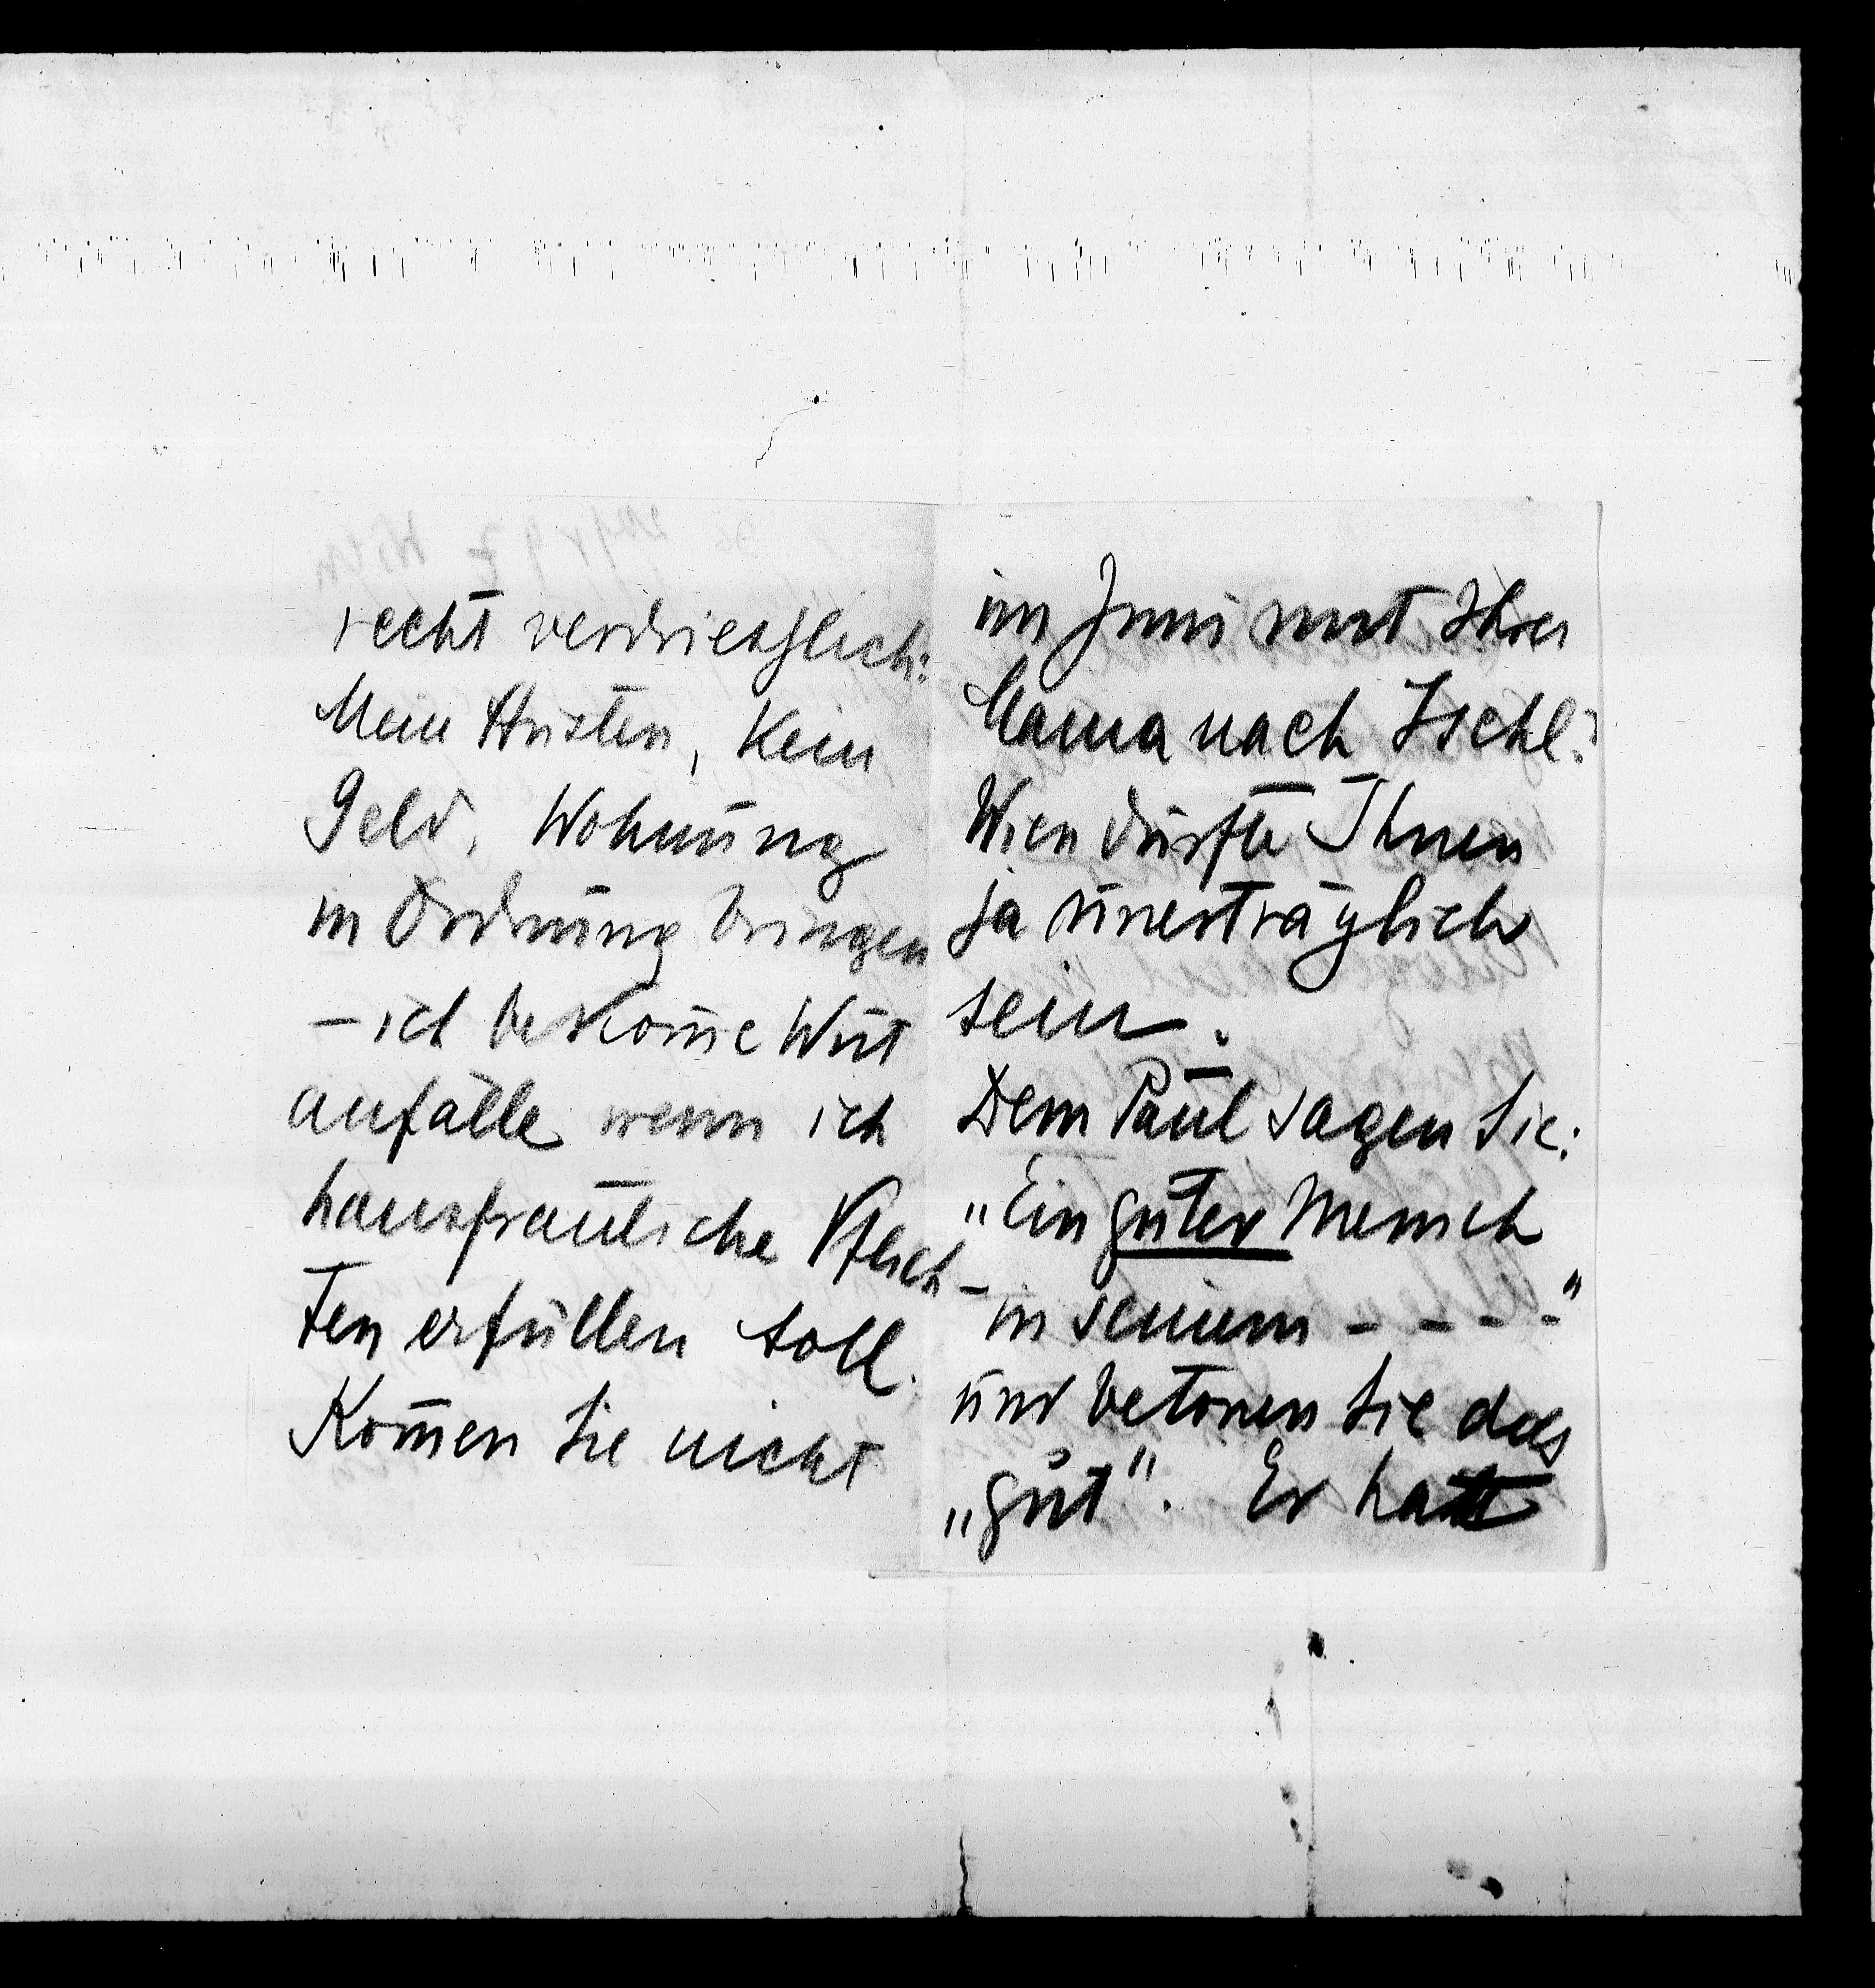 recht verdriesslich:
Mein Husten, Kein
Geld, Wohnung
in Ordnung bringen
– ich bekom̄e Wut
anfälle wenn ich
hausfrauliche Pflich-
ten erfüllen soll.
Kom̄en Sie nicht
im Juni mit Ihrer
Mama nach Ischl?
Wien dürfte Ihnen
ja unerträglich
sein.
Dem Paul sagen Sie:
„Ein guter Mensch
in seinem - - - -"
und betonen Sie das
„gut". Er hat